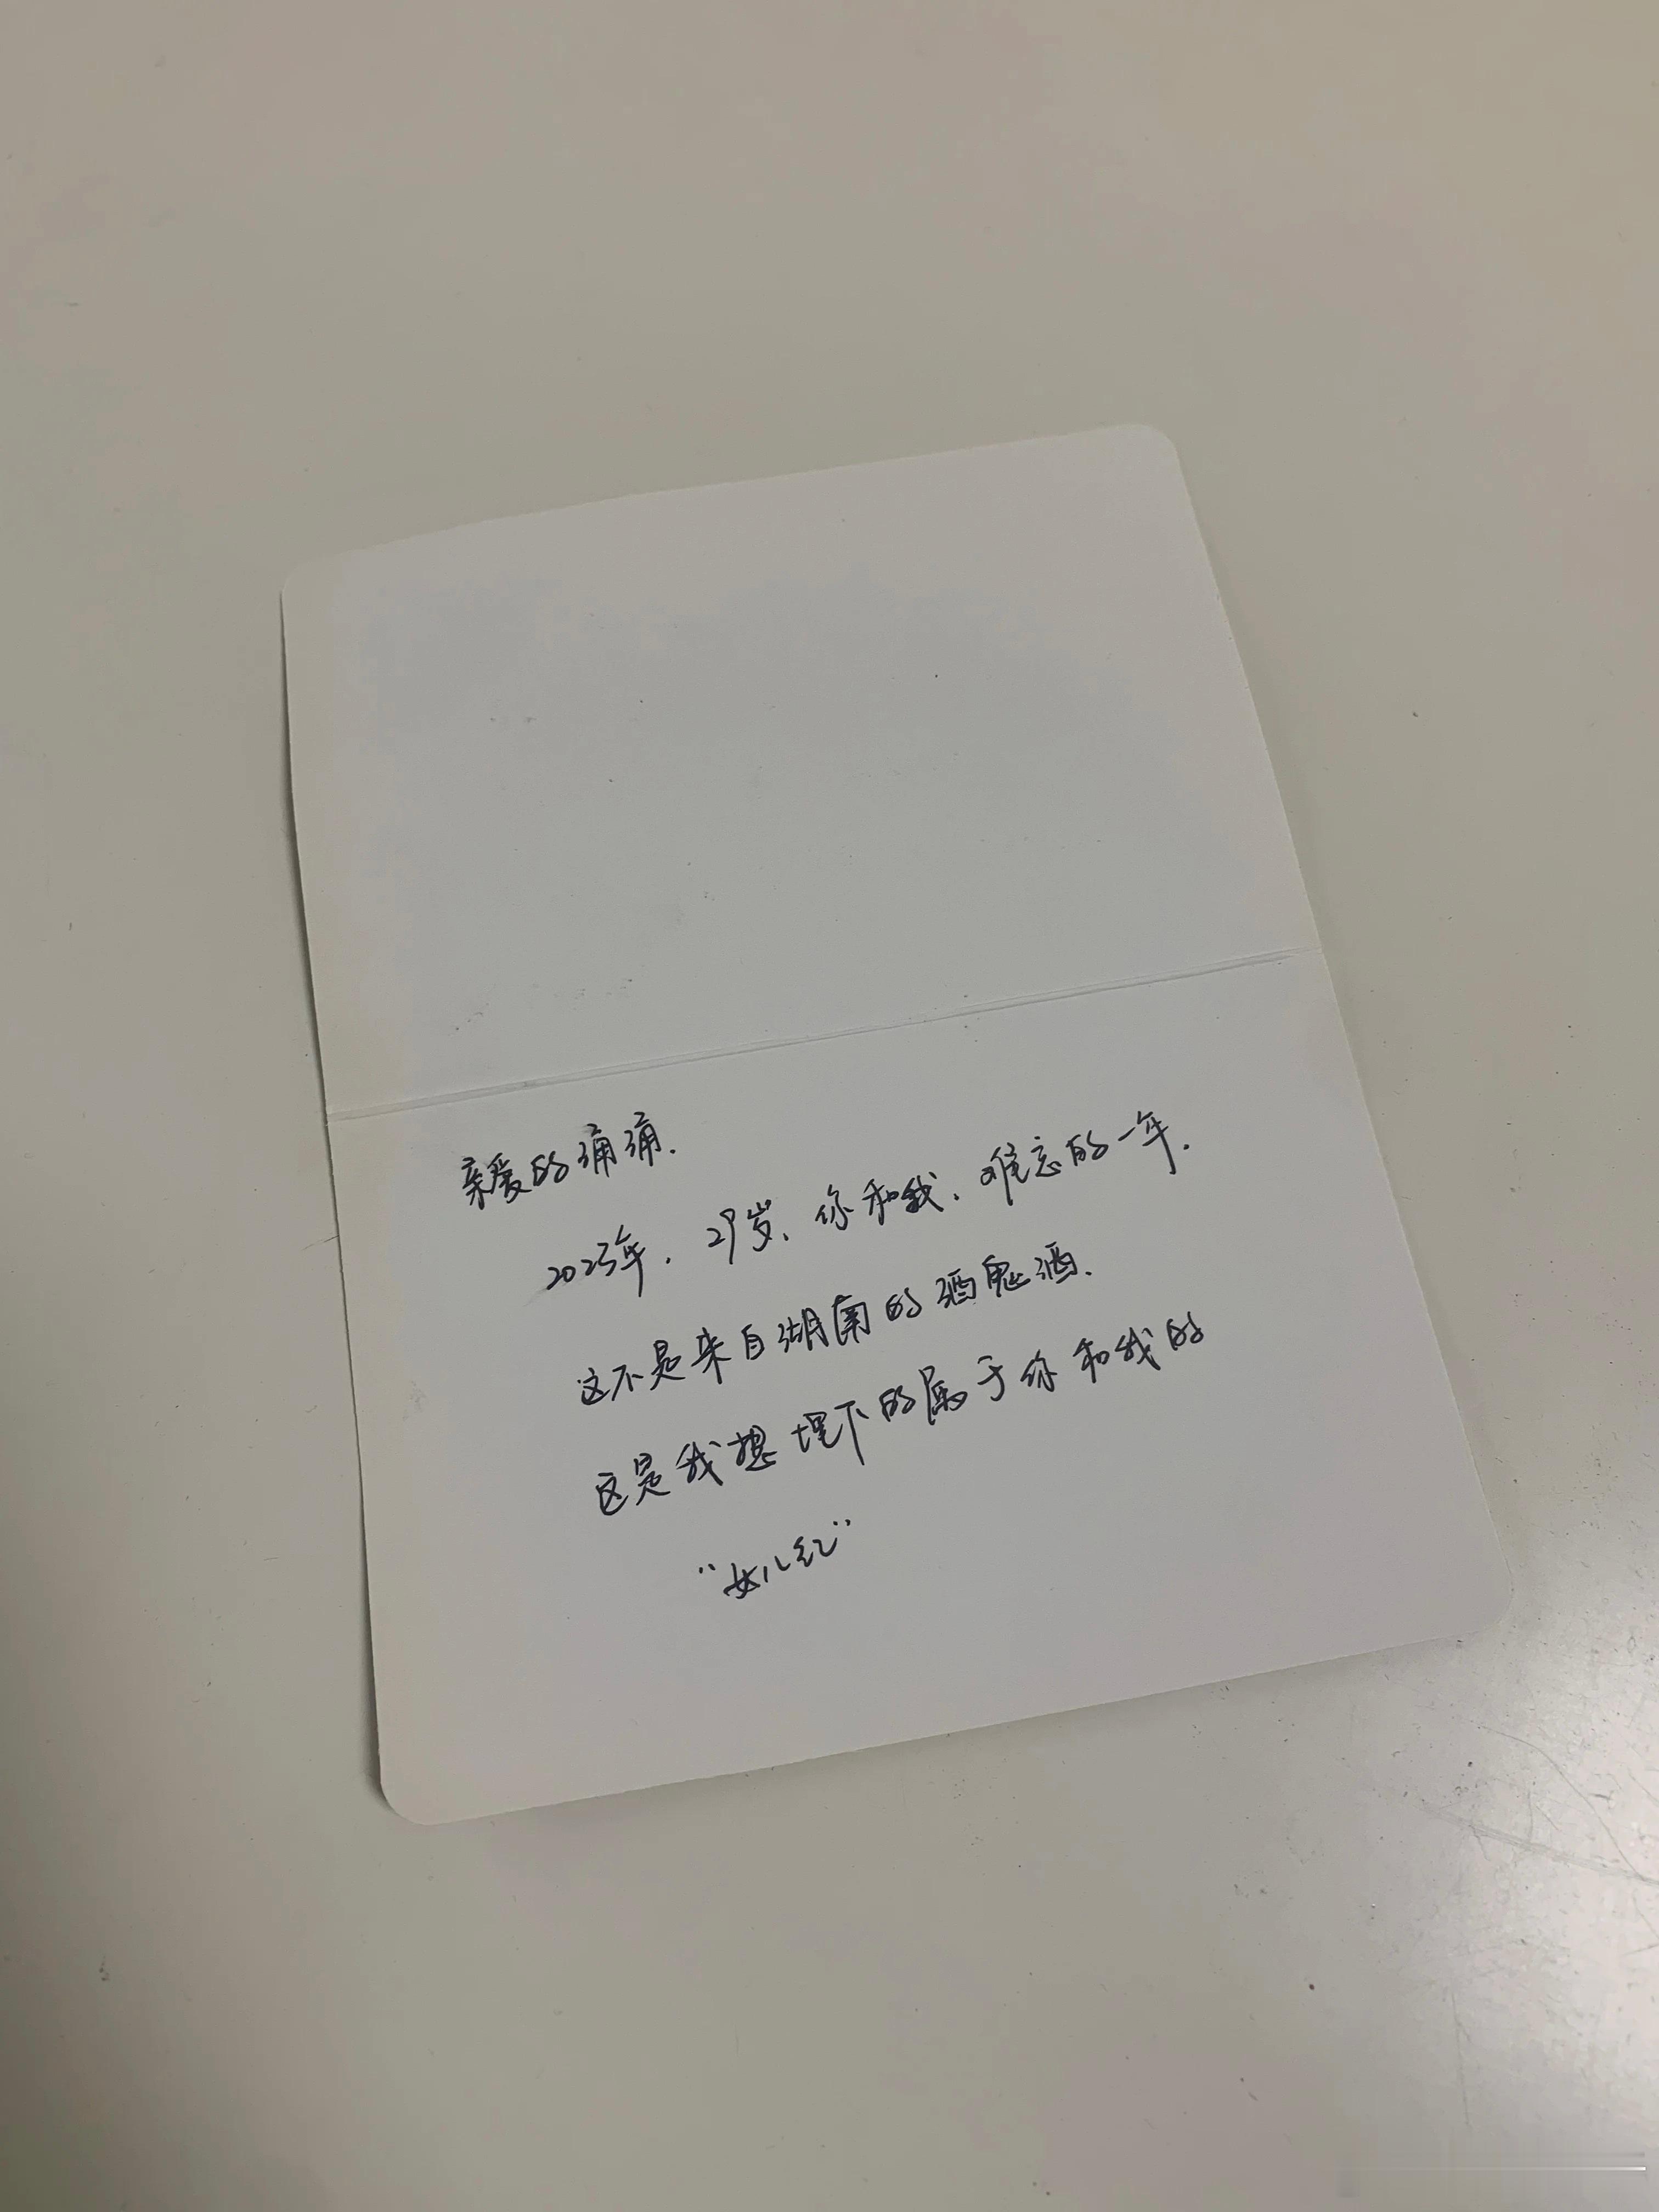 亲爱的涌涌.
2023年, 29岁、你和我、难忘的一年.
这不是来自湖南的酒鬼酒.
这是我想埋下的属于你和我的
“女儿红”